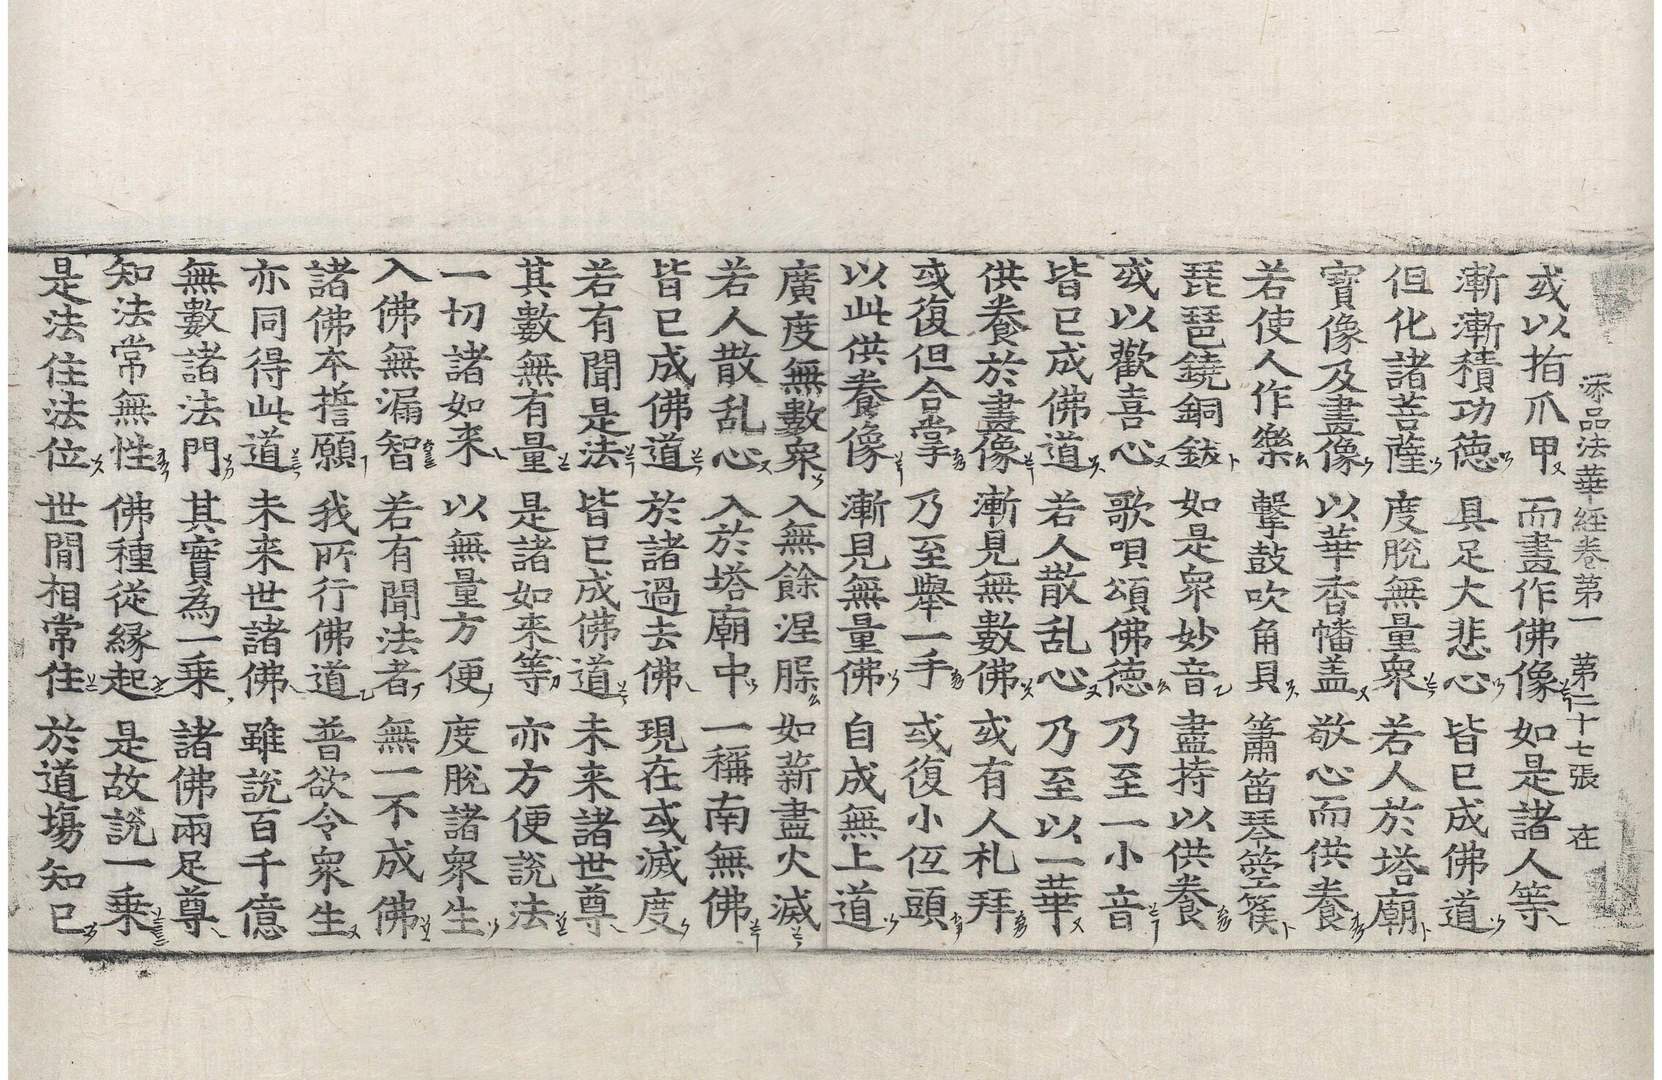 添品法華経卷第一 第二十七張 在
或以指爪甲 而畫作佛像 如是諸人等
漸漸積功德 具足大悲心 皆已成佛道
但化諸菩薩 度脫無量衆 若人於塔廟
寶像及畫像 以華香幡盖 敬心而供養
若使人作樂 擊鼓吹角貝 簫笛琴箜篌
琵琶鐃銅鈸 如是衆妙音 盡持以供養
或以歡喜心 歌唄頌佛德 乃至一小音
皆已成佛道 若人散乱心 乃至以一華
供養於畫像 漸見無數佛 或有人礼拜
或復但合掌 乃至舉一手 或復小低頭
以此供養像 漸見無量佛 自成無上道
廣度無數衆 入無餘涅槃 如薪盡火滅
若人散乱心 入於塔廟中 一稱南無佛
皆已成佛道 於諸過去佛 現在或滅度
若有聞是法 皆已成佛道 未来諸世尊
其數無有量 是諸如来等 亦方便說法
一切諸如来 以無量方便 度脫諸衆生
入佛無漏智 若有聞法者 無一不成佛
諸佛本誓願 我所行佛道 普欲令衆生
亦同得此道 未来世諸佛 雖說百千億
無數諸法門 其實為一乗 諸佛兩足尊
知法常無性 佛種從緣起 是故說一乗
是法住法位 世間相常住 於道塲知已